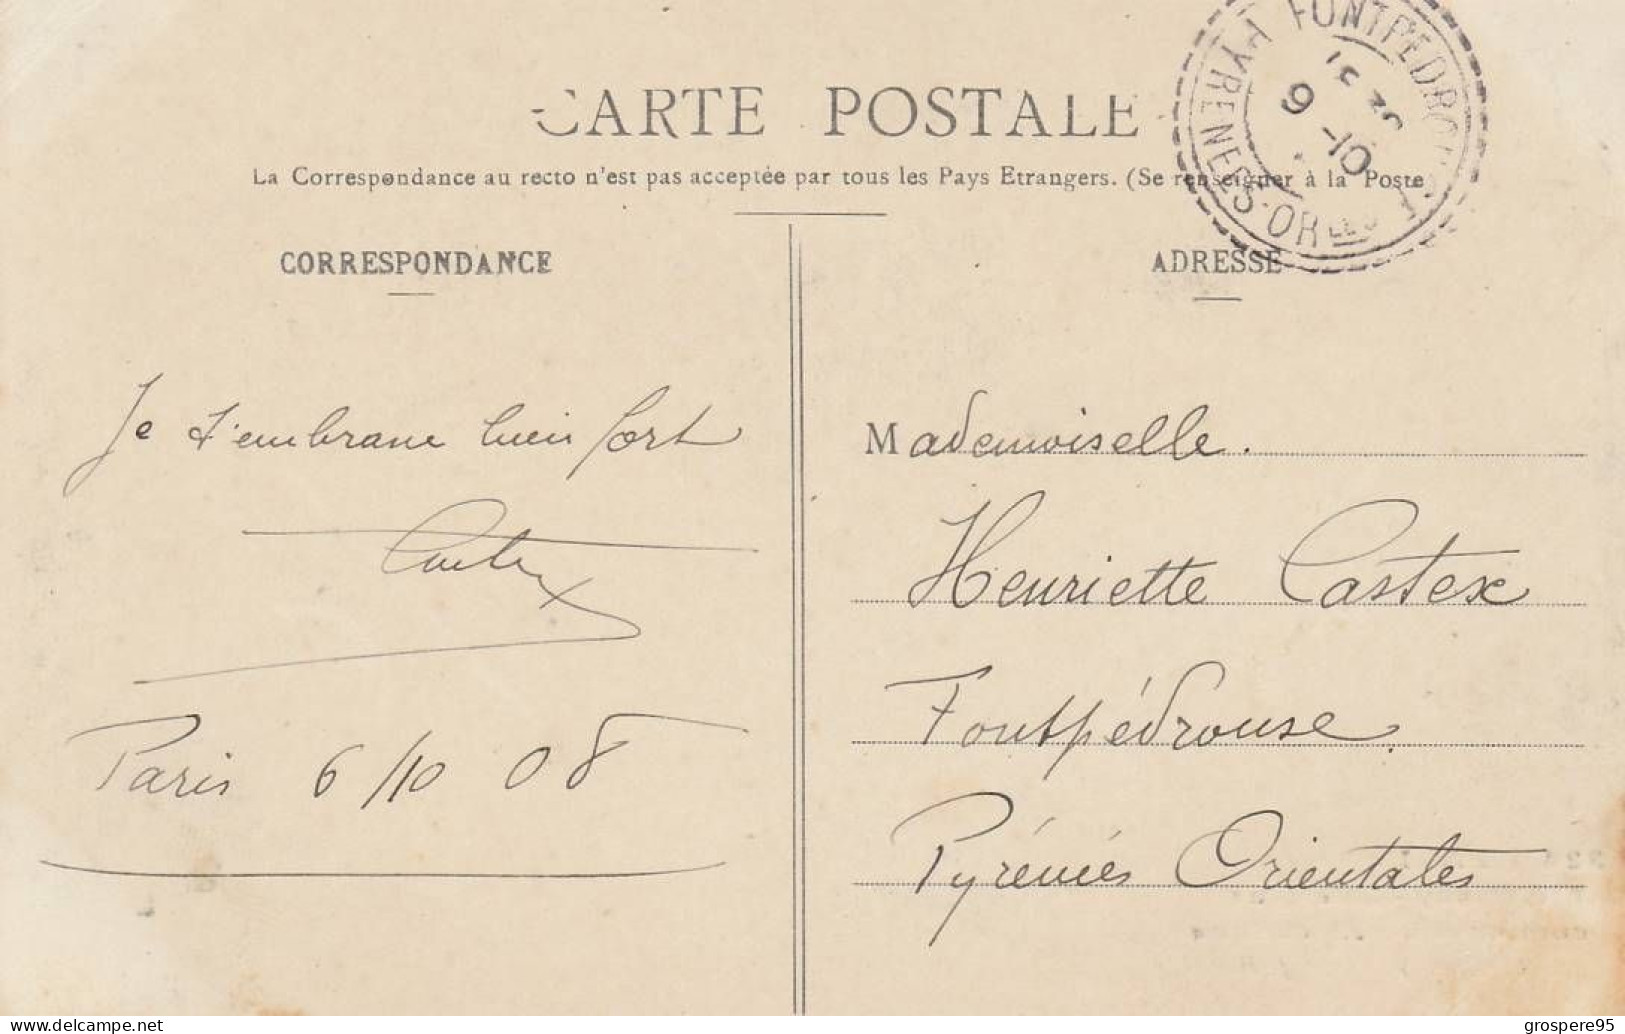 CARTE POSTALE
La Correspondance au recto n'est pas acceptée par tous les Pays Etrangers. (Se renseigner à la Poste
CORRESPONDANCE
Je t'embrasse bien fort
Paris 6/10 08
ADRESSE
Mademoiselle.
Henriette Castex
Fontpédrouse.
Pyrénées Orientales
FONTPEDRO
PYRENEES-ORLES
9 -10
www.delcampe.net
grospere95